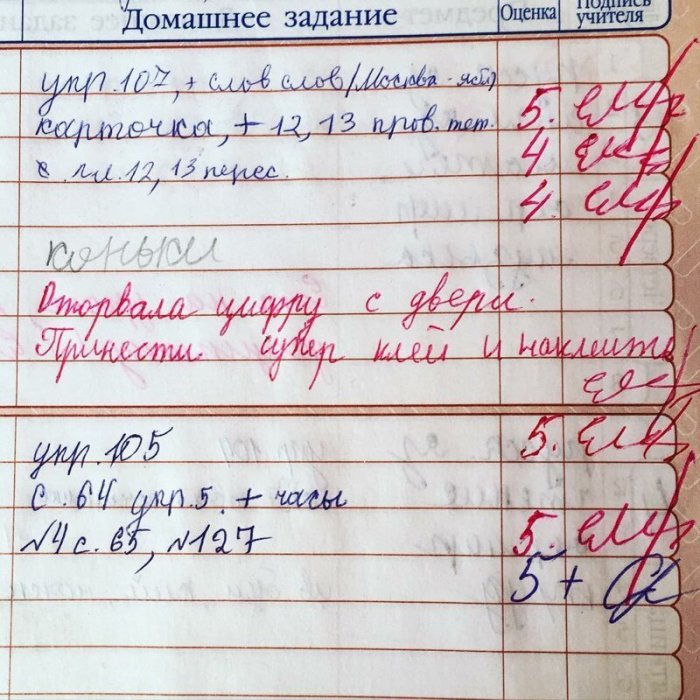 Домашнее задание Оценка Подпись учителя
упр. 107, + слов слов (Москва - яст) 5.
карточка, + 12, 13 пров. тет. 4.
с. 12, 13 перес. 4.
коньки
Оторвала цифру с двери.
Принести супер клей и наклеить
упр. 105 5.
с. 64 упр. 5. + часы
№4 с. 65, №127 5.
5+